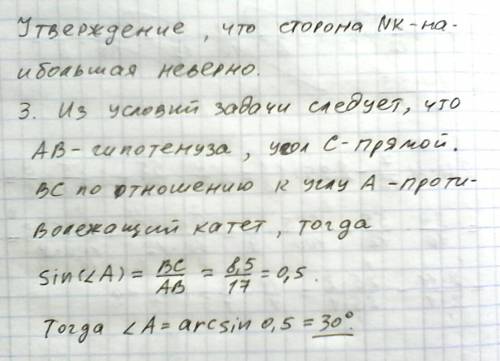 Утверждение, что сторона NK-на-
ибольшая неверно.
3. Из условий задачи следует, что
AB-гипотенуза, угол C-прямой.
BC по отношению к углу A-проти-
волежащий катет, тогда
sin(∠A) = BC/AB = 8,5/17 = 0,5.
Тогда ∠A = arcsin 0,5 = 30°.